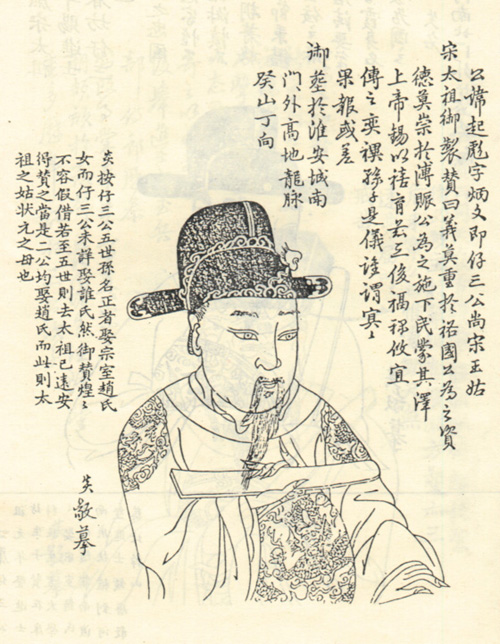 公諱起彪字炳文即仔三公尚宋王姑
宋太祖御製贊曰義莫重於裕國公為之資
德莫崇於溥賑公為之施下民蒙其澤
上帝錫以禧育茲三俊福祿攸宜
傳之奕禩孫子是儀誰謂冥冥
果報或差
御塟於淮安城南
門外高地龍脉
癸山丁向
炎按仔三公五世孫名正者娶宗室趙氏
女而仔三公未詳娶誰氏然御贊煌煌
不容假借若至五世則去太祖已遠安
得贊之當是二公均娶趙氏而此則太
祖之姑狀元之母也
炎敬摹